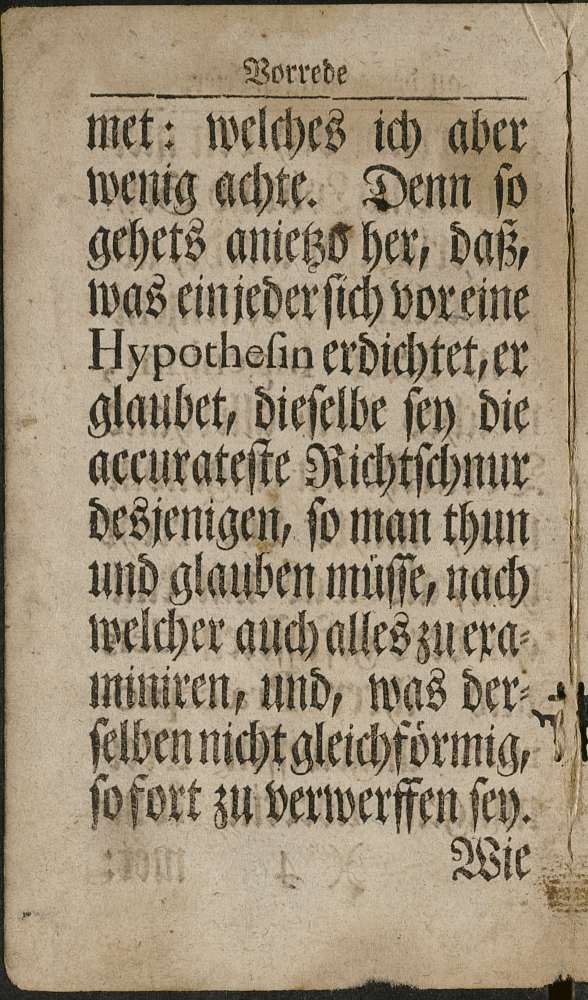 Vorrede
met: welches ich aber
wenig achte. Denn ſo
gehets anietzo her, daß,
was ein jeder ſich vor eine
Hypotheſin erdichtet, er
glaubet, dieſelbe ſey die
accurateſte Richtſchnur
desjenigen, ſo man thun
und glauben müſſe, nach
welcher auch alles zu exa⸗
miniren, und, was der⸗
ſelben nicht gleichförmig,
ſo fort zu verwerffen ſey.
Wie